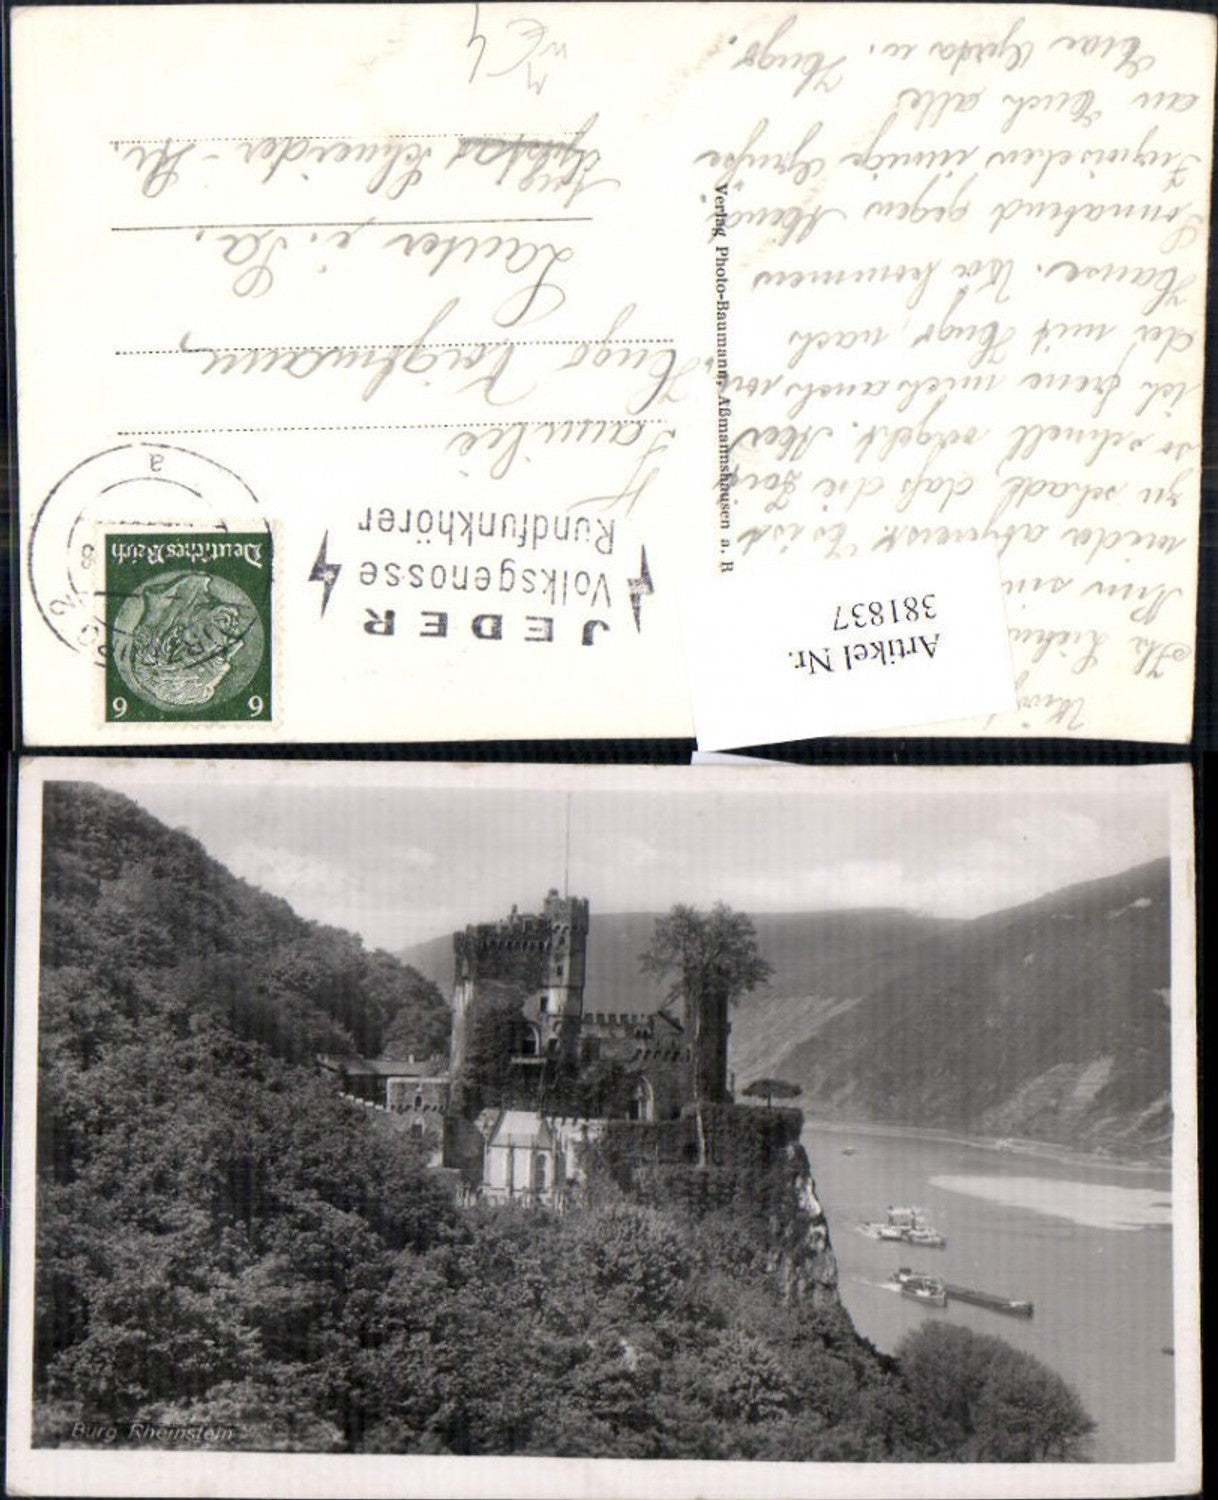 Ihr Lieben
Nun sin
wieder abgereist. Es ist
zu schade, daß die Zeit
so schnell vergeht. Aber
ich freue mich auch, wenn
da mit Hugo, nach
Hause. Wir kommen
Sonnabend gegen Abend.
Inzwischen innige Grüße
an Euch alle
Eure Gerda u. Hugo.
Verlag Photo-Baumann, Aßmannshausen a. R
JEDER
Volksgenosse
Rundfunkhörer
Deutsches Reich
6 6
a
Familie
Hugo
Lauter i. Sa.
Schneider-Str.
Artikel Nr.
381837
Burg Rheinstein